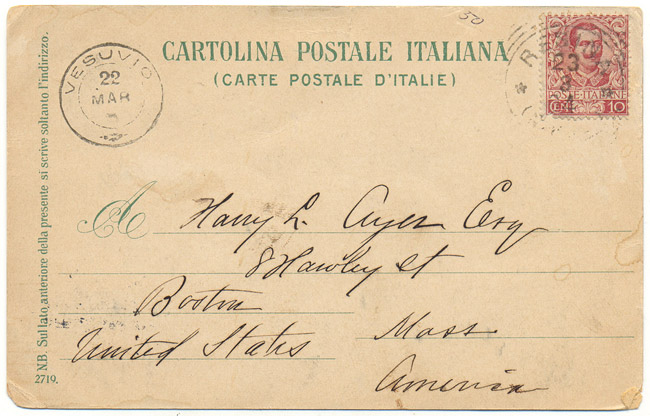 50
CARTOLINA POSTALE ITALIANA
(CARTE POSTALE D'ITALIE)
VESUVIO
22
MAR
23
3
POSTE ITALIANE
CENT. 10
A Harry L. Ayer Esq
8 Hawley St
Boston
Mass
United States
America
N.B. Sul lato anteriore della presente si scrive soltanto l'indirizzo.
2719.